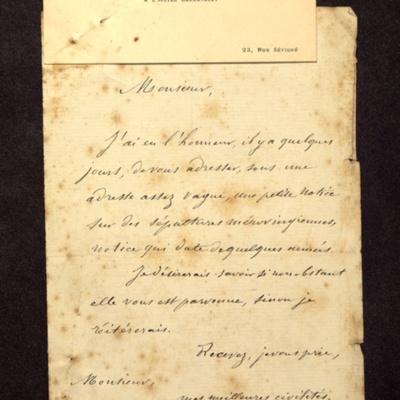 A L'HOTEL CARNAVALET
23, RUE SÉVIGNÉ
Monsieur,
J'ai eu l'honneur, il y a quelques
jours, de vous adresser, sous une
adresse assez vague, une petite notice
sur des sépultures mérovingiennes,
notice qui date de quelques années.
Je désirerais savoir si nonobstant
elle vous est parvenue, sinon je
réitérerais.
Recevez, je vous prie,
Monsieur,
mes meilleures civilités.